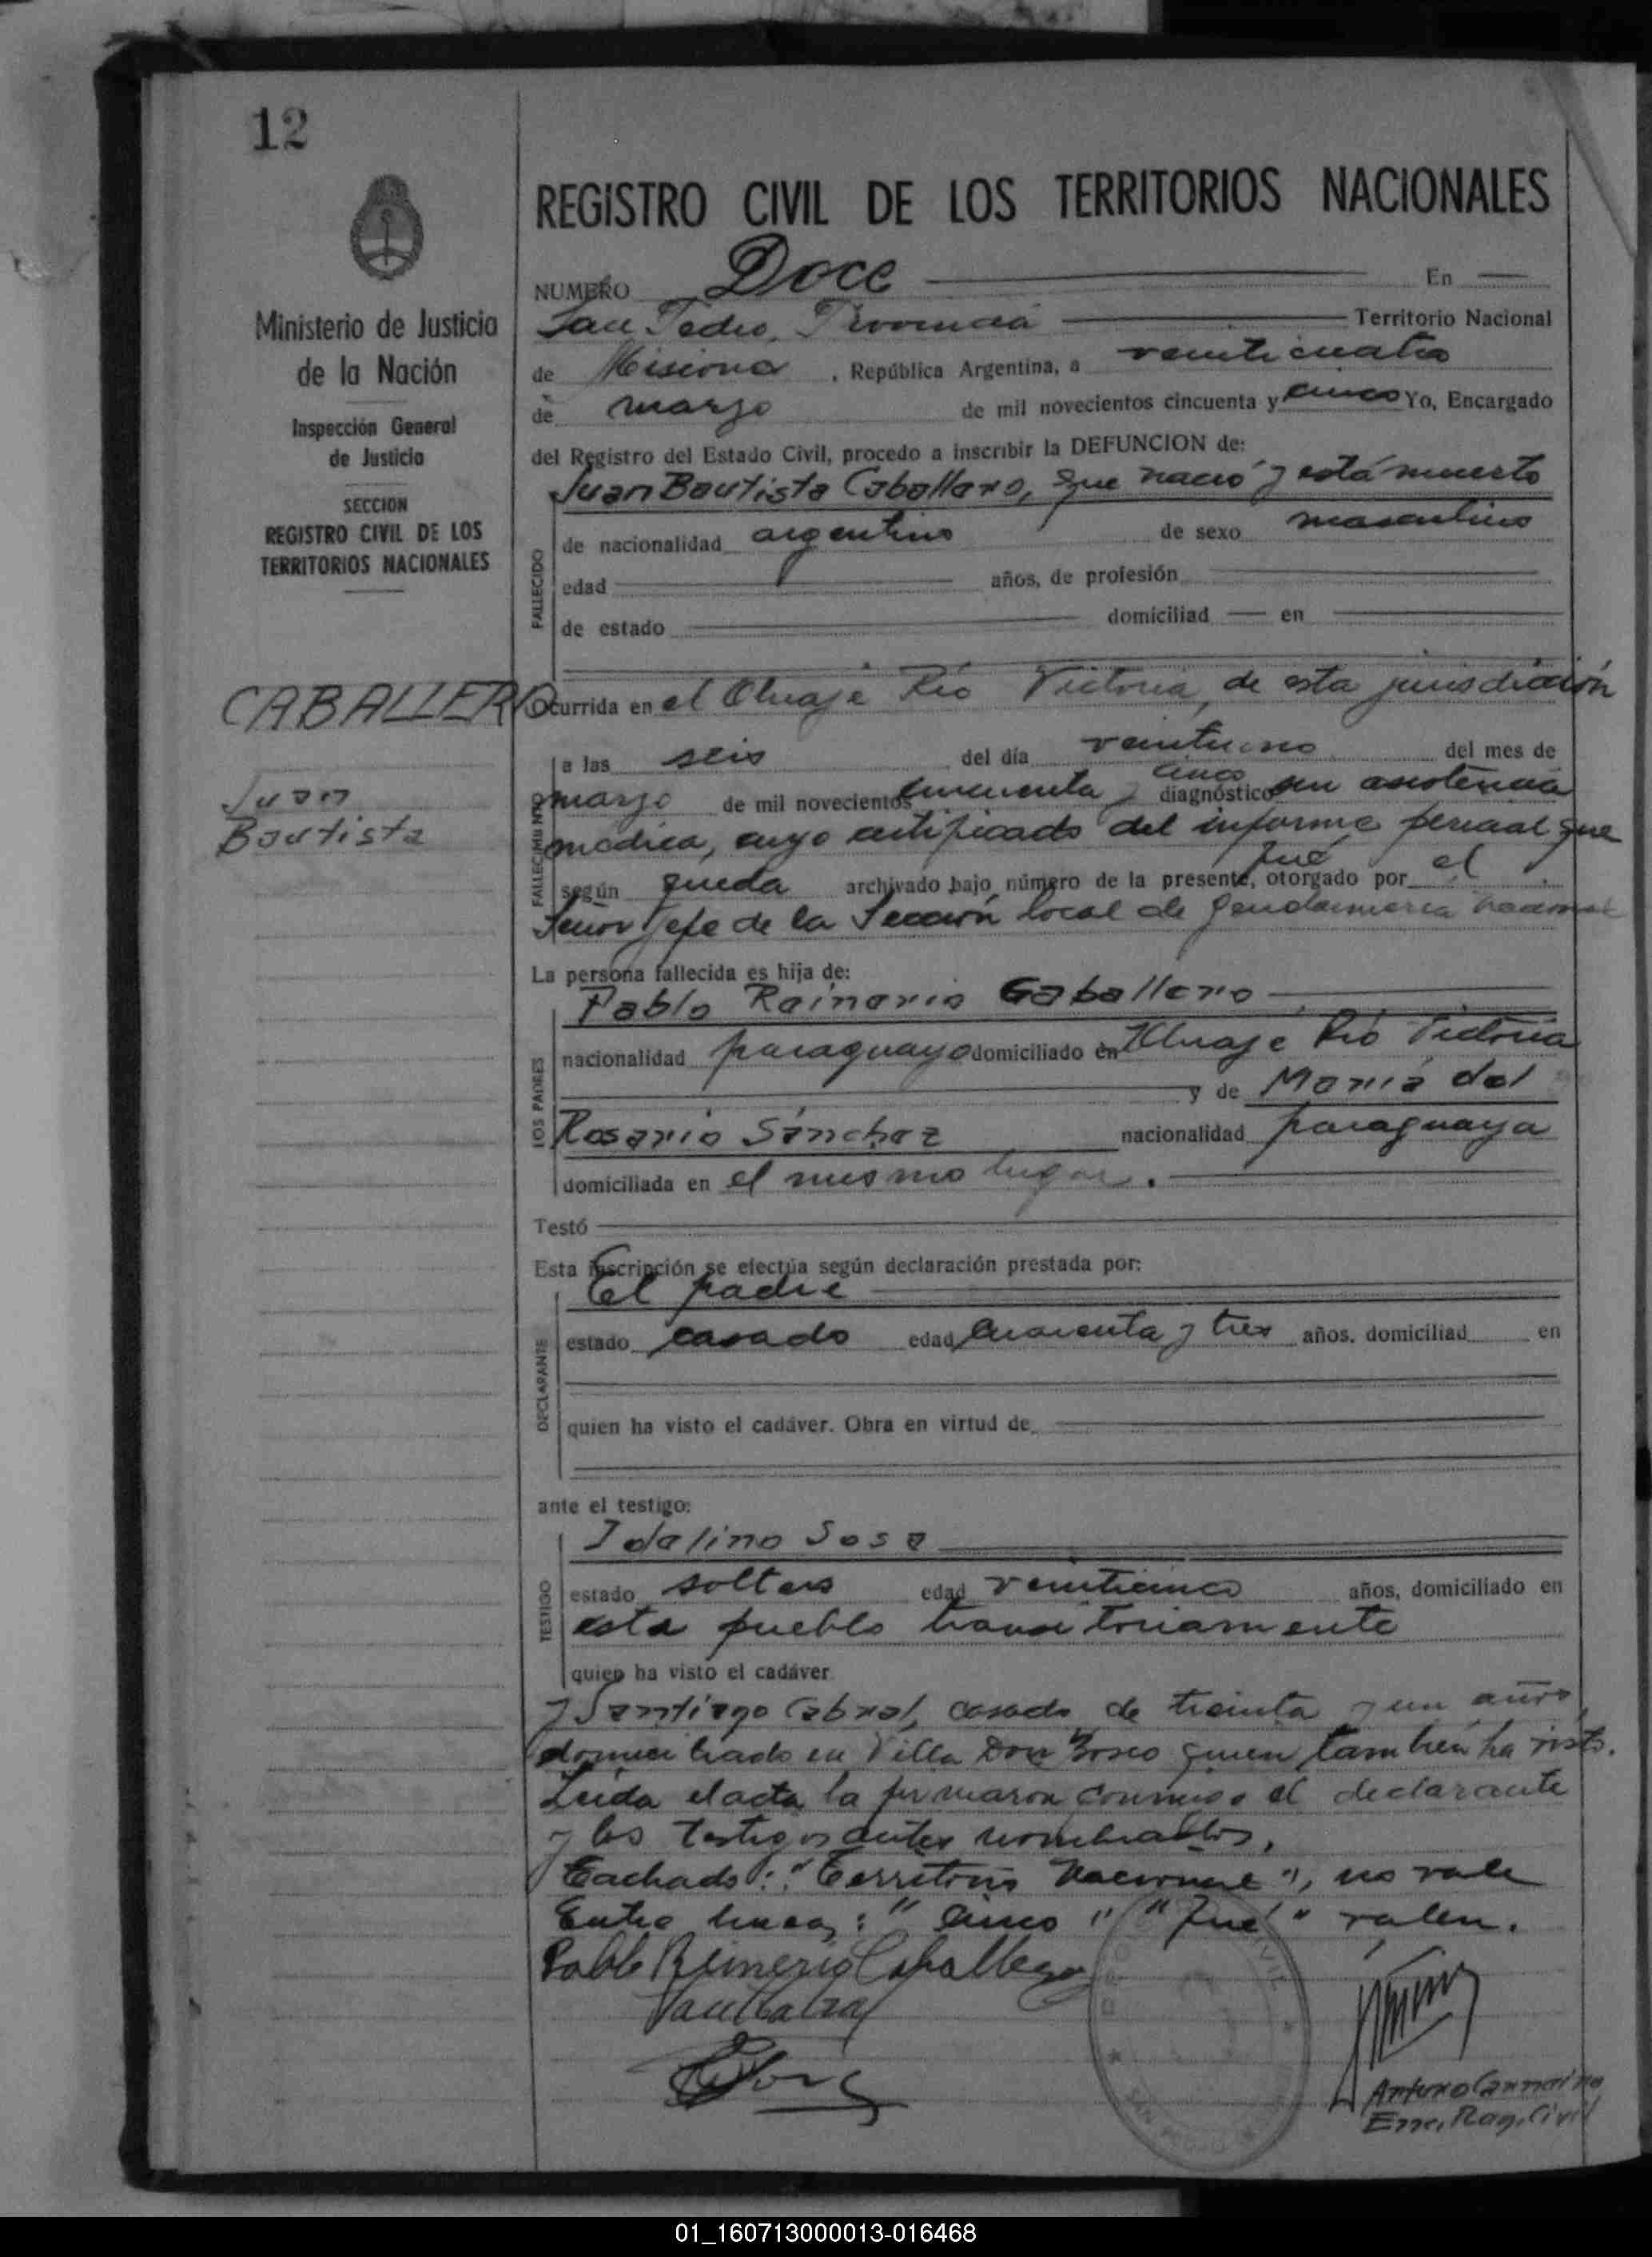 12
REGISTRO CIVIL DE LOS TERRITORIOS NACIONALES
Ministerio de Justicia
de la Nación
Inspección General
de Justicia
SECCION
REGISTRO CIVIL DE LOS
TERRITORIOS NACIONALES
CABALLERO
Juan
Bautista
NUMERO Doce En
San Pedro, Provincia Territorio Nacional
de Misiones, República Argentina, a veinticuatro
de marzo de mil novecientos cincuenta y cinco Yo, Encargado
del Registro del Estado Civil, procedo a inscribir la DEFUNCION de:
Juan Bautista Caballero, que nació y está muerto
FALLECIDO
de nacionalidad argentino de sexo masculino
edad años, de profesión
de estado domiciliad en
Ocurrida en el Río Victoria, de esta jurisdicción
a las seis del día veintiuno del mes de
cinco
marzo de mil novecientos cincuenta y diagnóstico sin asistencia
FALLECIMIENTO
médica, cuyo certificado del informe pericial que
fué
según queda archivado bajo número de la presente, otorgado por el
Señor Jefe de la Sección local de Gendarmería Nacional
La persona fallecida es hija de:
Pablo Rainerio Caballero
LOS PADRES
nacionalidad paraguayo domiciliado en Río Victoria
y de María del
Rosario Sánchez nacionalidad paraguaya
domiciliada en el mismo lugar.
Testó
Esta inscripción se efectúa según declaración prestada por:
El padre
DECLARANTE
estado casado edad cuarenta y tres años, domiciliad en
quien ha visto el cadáver. Obra en virtud de
ante el testigo:
Idalino Sosa
TESTIGO
estado soltero edad veinticinco años, domiciliado en
este pueblo transitoriamente
quien ha visto el cadáver
y Santiago Cabral, casado de treinta y un años,
domiciliado en Villa Don Bosco quien también ha visto.
Leída el acta la firmaron conmigo el declarante
y los testigos antes nombrados.
Tachado: "Territorio Nacional", no vale
Entre líneas: "cinco" "fué" valen.
Pablo Reinerio Caballero
Enc. Reg. Civil
01_160713000013-016468